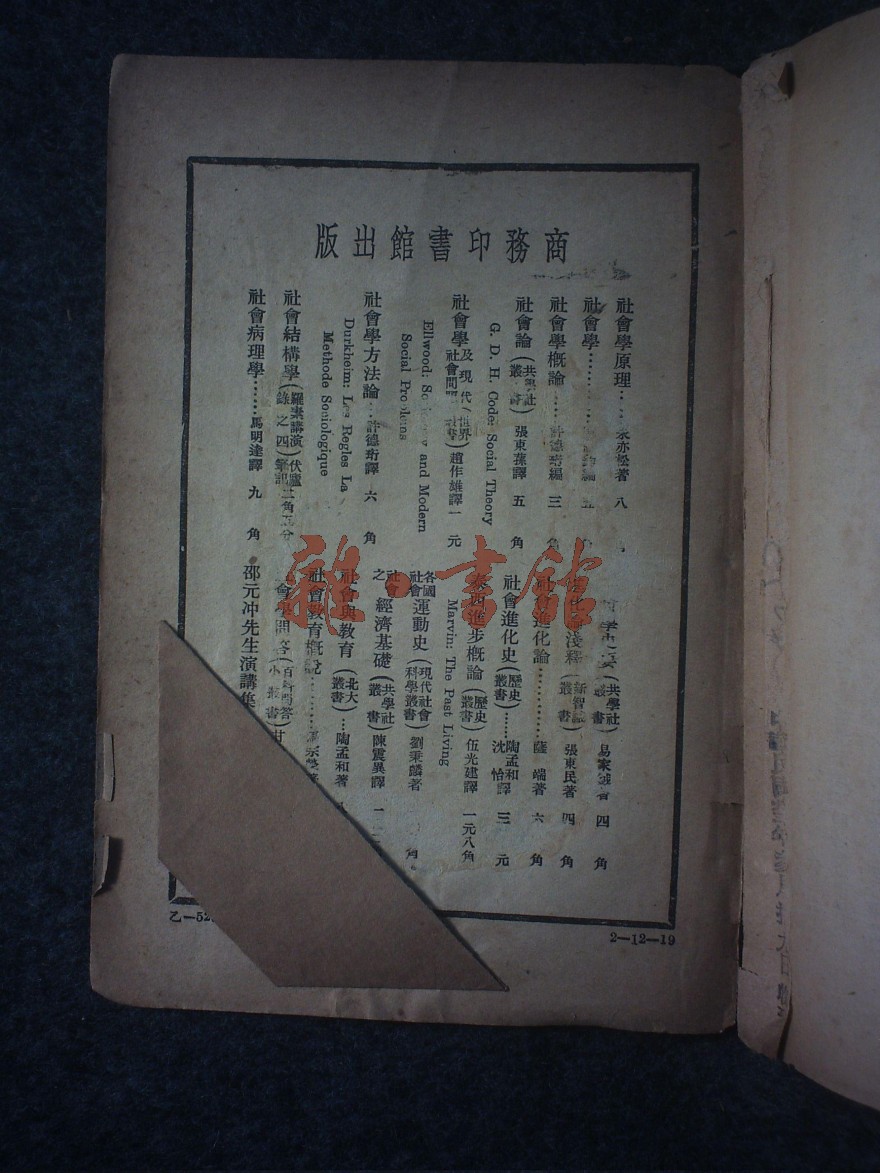 商務印書館出版
社會學原理……亦松著 八
社會學……編 五
社會學概論……許德珩編 三 角
社會論(共學社叢書)張東蓀譯 五 角
G. D. H. Code: Social Theory
社會學及現代社會問題(世界叢書)趙作雄譯 一 元
Ellwood: Sociology and Modern
Social Problems
社會學方法論…許德珩譯 六 角
Durkheim: Les Regles La
Methode Sociologique
社會結構學(羅素講演錄之四)伏廬筆記 二角五分
社會病理學……馬明達譯 九 角
(共學社叢書)易家鉞著 四 角
淺釋(新智識叢書)張東民著 四 角
社會進化論……薩端著 六 角
社會進化史(歷史叢書)……陶孟和 沈怡譯 三 元
泰西進步概論(歷史叢書)伍光建譯 一元八角
Marvin: The Past Living
各國社會運動史(現代社會科學叢書)劉秉麟著 角
社會之經濟基礎(共學社叢書)陳震異譯 一
社會與教育(北大叢書)…陶孟和著
社會教育概說……宗
會學問答(百科問答小叢書)甘
邵元冲先生演講集
乙—52
2—12—19
雜·書館